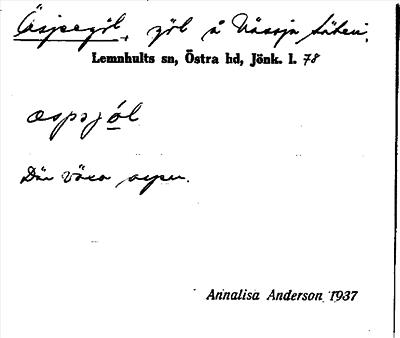 Äspegöl, göl å Nässja säteri,
Lemnhults sn, Östra hd, Jönk. l. 78
æspsjöl
Där växa aspar.
Annalisa Anderson 1937